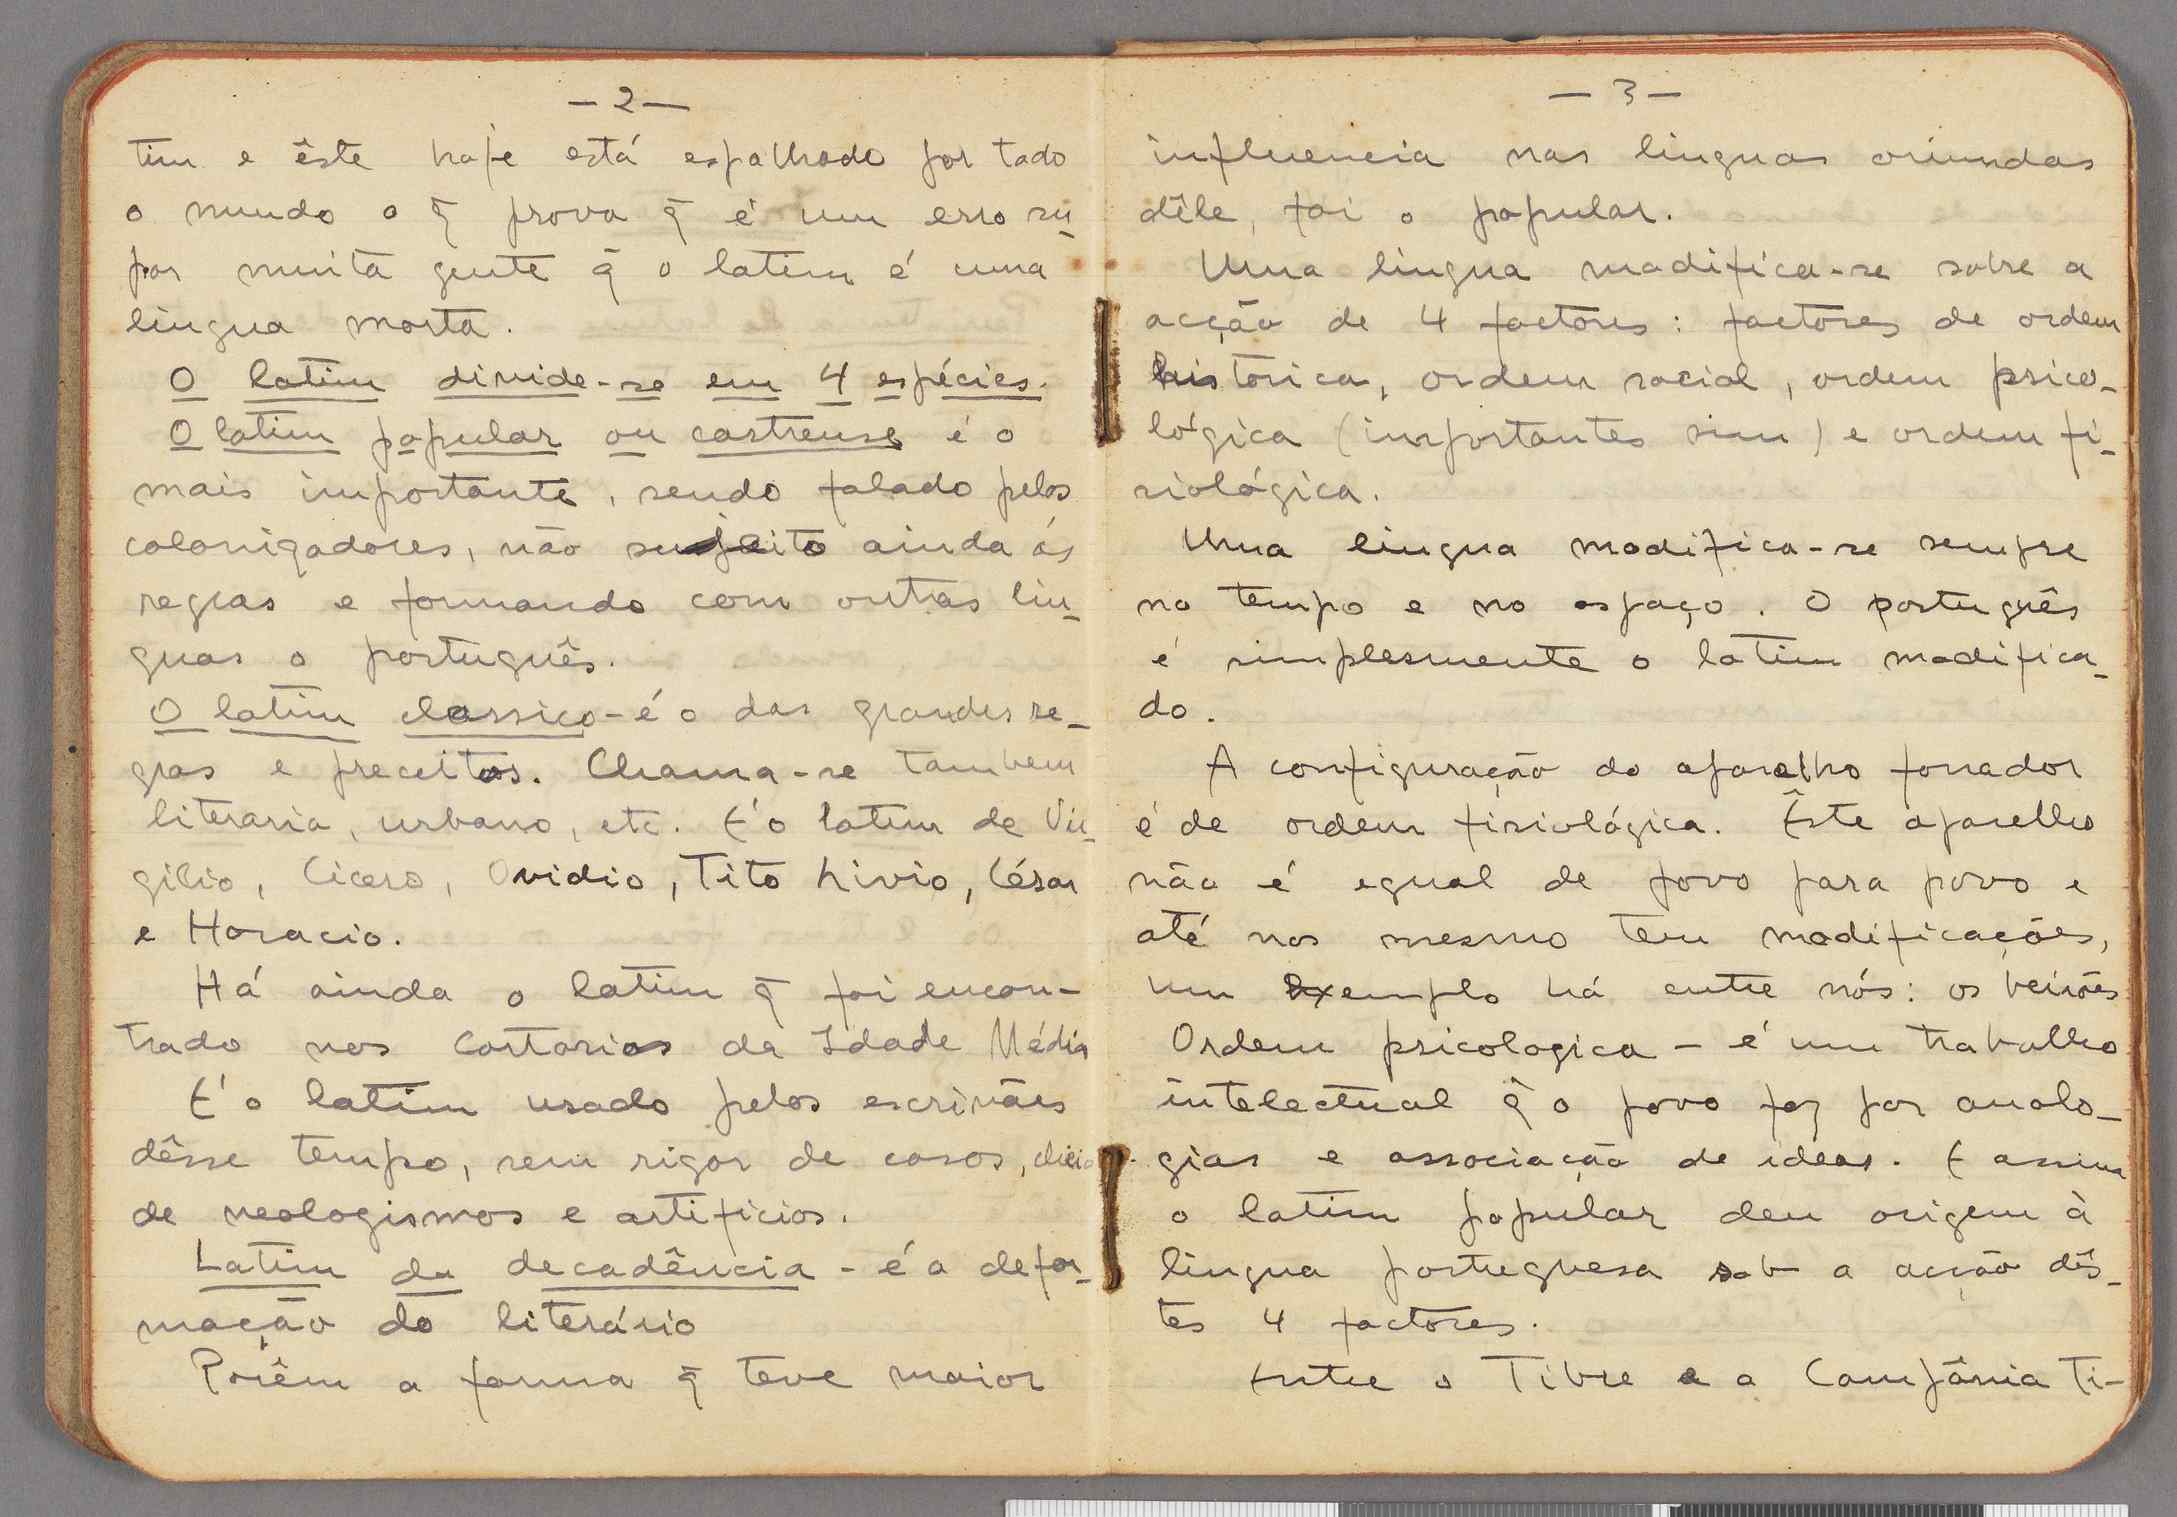 — 2 —
tim e êste hoje está espalhado por todo
o mundo o q̃ prova q̃ é um erro su-
por muita gente q̃ o latim é uma
lingua morta.
O latim divide-se em 4 espécies.
O latim popular ou castrense é o
mais importante, sendo falado pelos
colonizadores, não sujeito ainda ás
regras e formando com outras lin-
guas o português.
O latim classico - é o das grandes re-
gras e preceitos. Chama-se tambem
literaria, urbano, etc. É o latim de Vir-
gilio, Cicero, Ovidio, Tito Livio, César
e Horacio.
Há ainda o latim q̃ foi encon-
trado nos Cartorios da Idade Média
É o latim usado pelos escrivães
dêsse tempo, sem rigor de casos,
de neologismos e artificios.
Latim da decadência - é a defor-
mação do literário
Porêm a forma q̃ teve maior
— 3 —
influencia nas linguas oriundas
dêle, foi o popular.
Uma lingua modifica-se sobre a
acção de 4 factores: factores de ordem
historica, ordem social, ordem psico-
lógica (importantes sim) e ordem fi-
siológica.
Uma lingua modifica-se sempre
no tempo e no espaço. O português
é simplesmente o latim modifica-
do.
A configuração do aparelho fonador
é de ordem fisiológica. Êste aparelho
não é egual de povo para povo e
até nos mesmo tem modificações,
um exemplo há entre nós: os beirões
Ordem psicologica - é um trabalho
intelectual q̃ o povo faz por analo-
gias e associação de ideas. E assim
o latim popular deu origem à
lingua portuguesa sob a acção dês-
tes 4 factores.
Entre o Tibre e a Campânia Ti-